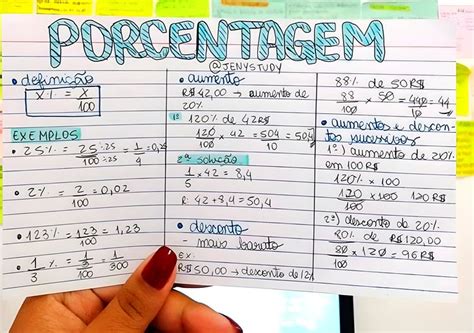 PORCENTAGEM
@JENYSTUDY
• definição
x% = x/100
EXEMPLOS
• 25% = 25:25/100:25 = 1/4 = 0,25
• 2% = 2/100 = 0,02
• 123% = 123/100 = 1,23
• 1/3 % = 1/3/100 = 1/300
• aumento
R$42,00 → aumento de
20%
1ª 120% de 42R$
120/100 · 42 = 504/10 = 50,4
2ª solução
1/5 × 42 = 8,4
R: 42 + 8,4 = 50,4
• desconto
- mais barato
ex:
R$50,00 → desconto de 12%
88% de 50R$
88/100 × 50 = 440/10 = 44
• aumentos e descon-
tos sucessivos
1º) aumento de 20%
em 100R$
120% × 100
120/100 × 100 120R$
2º) desconto de 20%
80% de R$120,00
80/100 × 120 = 96R$